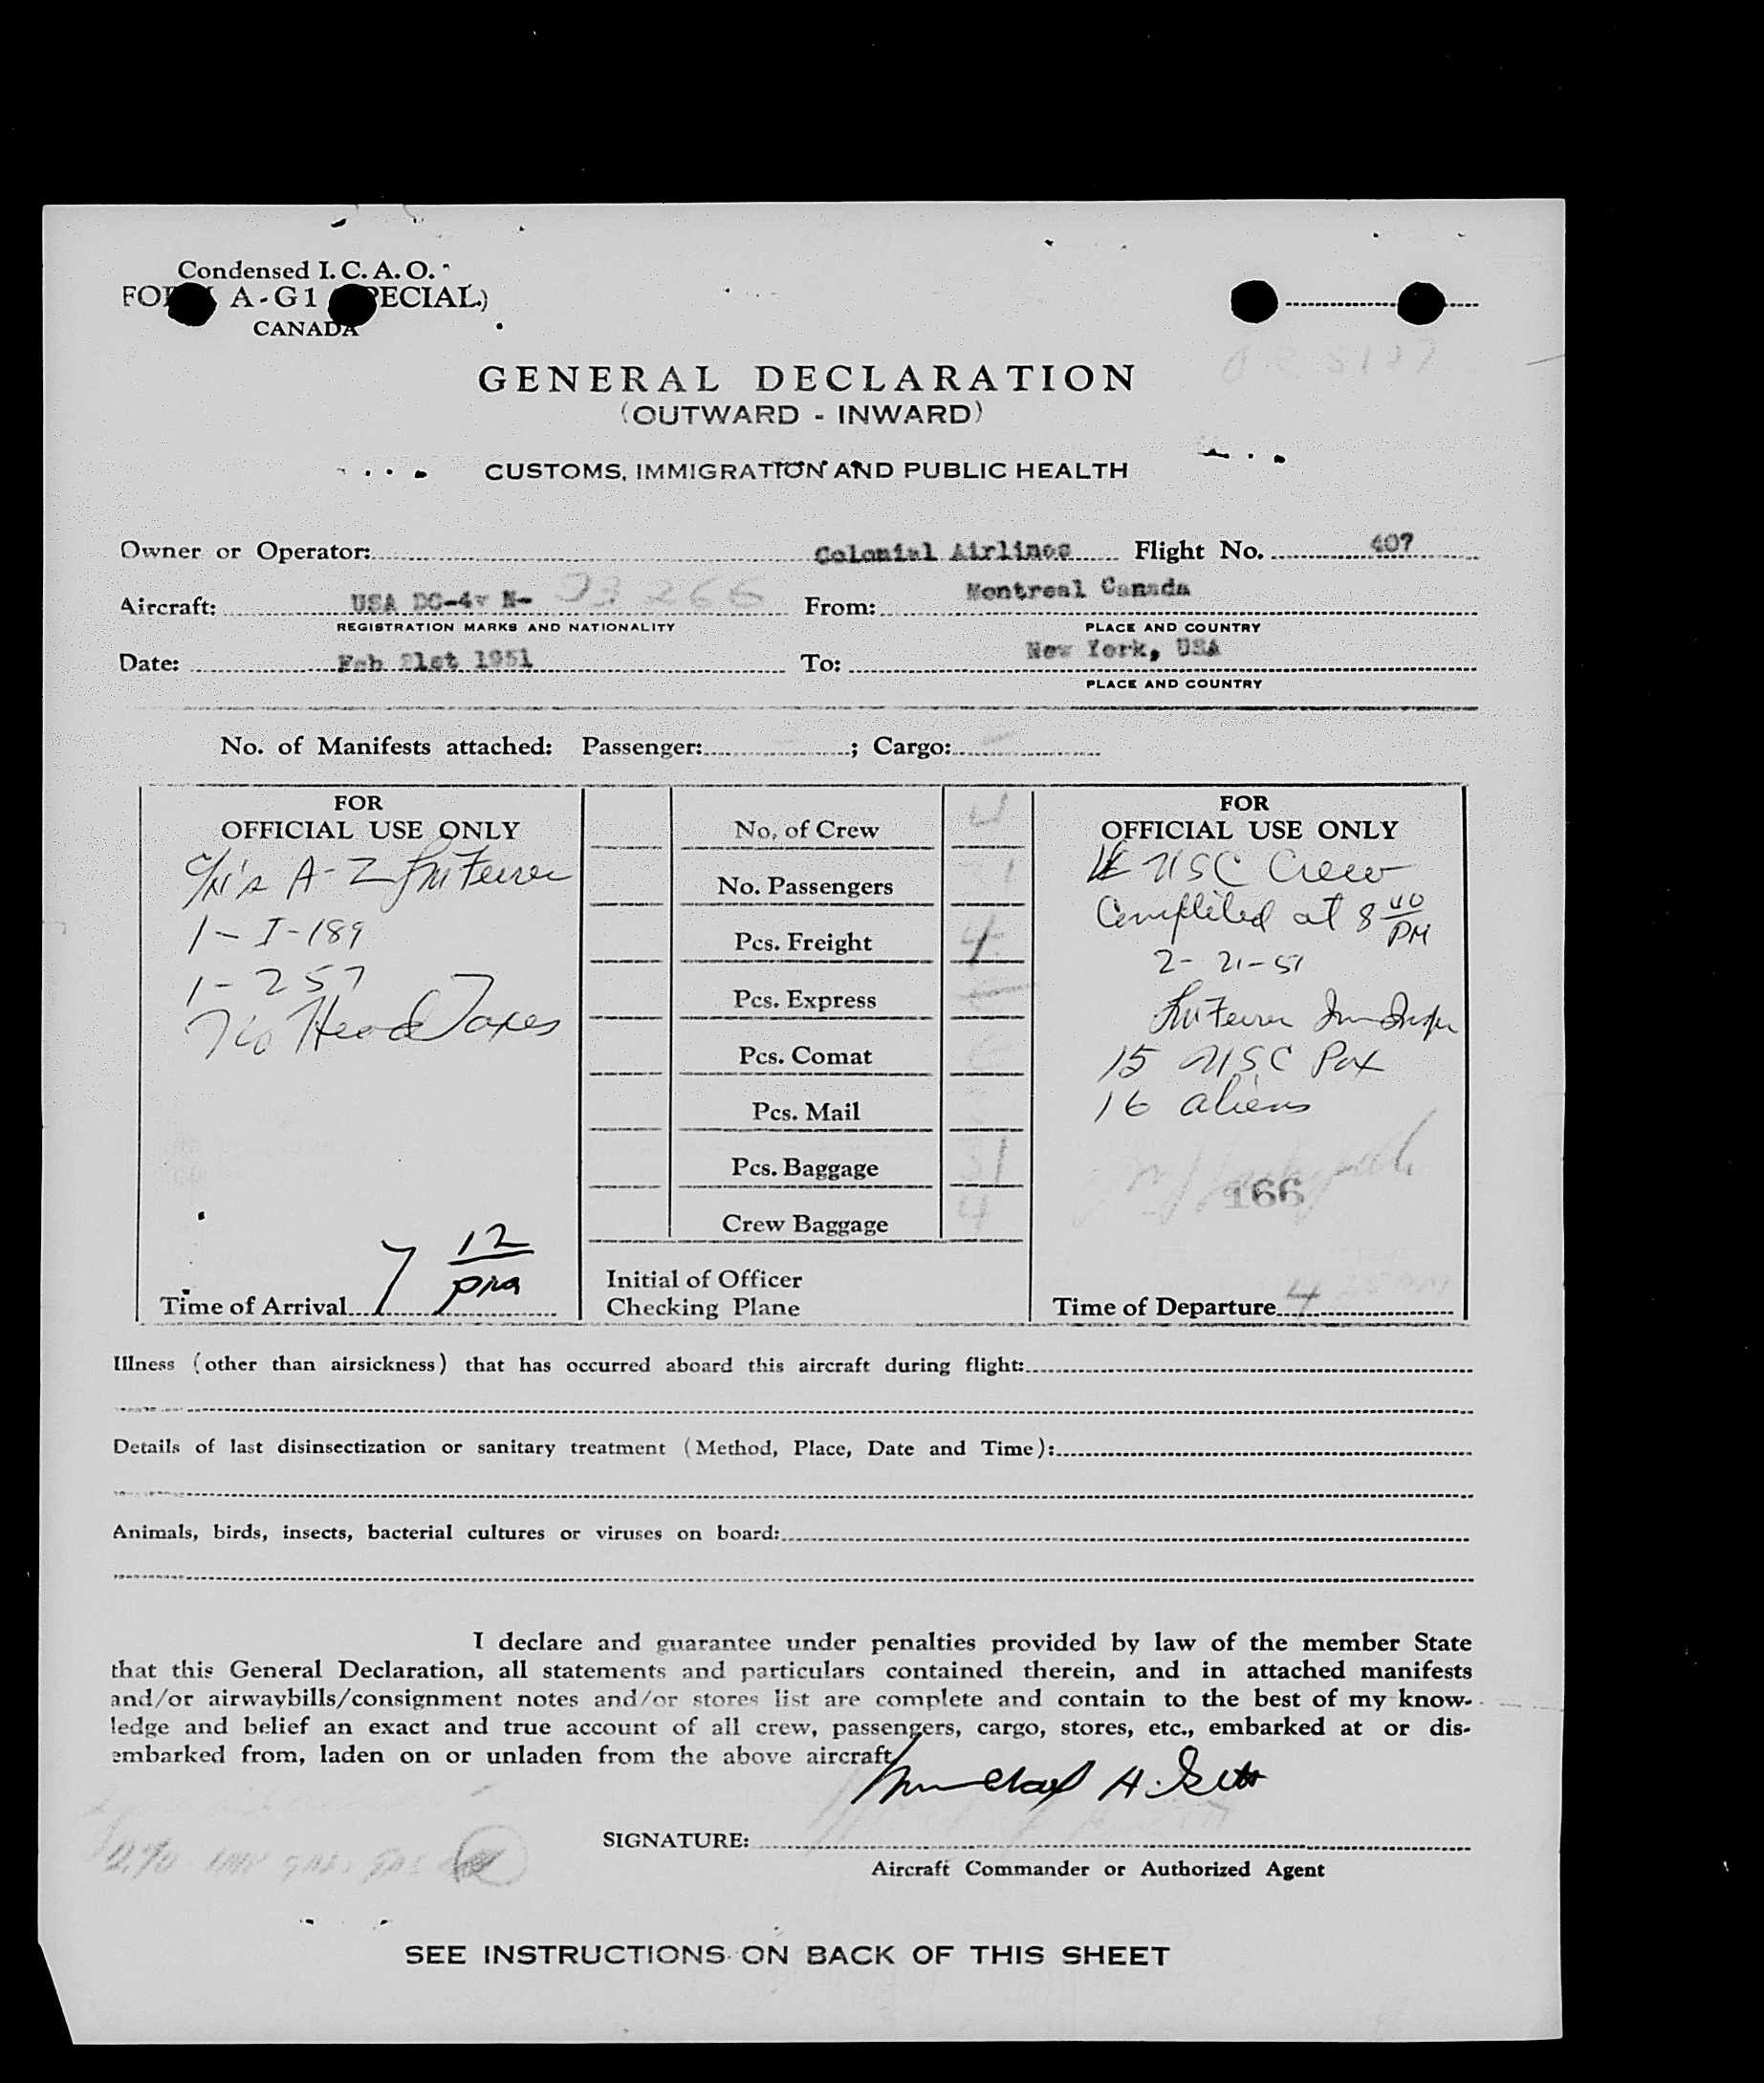 Condensed I. C. A. O.
A-G1
CANADA
GENERAL DECLARATION
(OUTWARD - INWARD)
CUSTOMS, IMMIGRATION AND PUBLIC HEALTH
Owner or Operator: Colonial Airlines Flight No. 407
Aircraft: USA DC-4 N- 93266 From: Montreal Canada
REGISTRATION MARKS AND NATIONALITY PLACE AND COUNTRY
Date: Feb 21st 1951 To: New York, USA
PLACE AND COUNTRY
No. of Manifests attached: Passenger: ; Cargo:
FOR
OFFICIAL USE ONLY
A-Z
1-I-189
1-257
No Head Taxes
Time of Arrival 7 12 pm
No. of Crew 4
No. Passengers
Pcs. Freight
Pcs. Express
Pcs. Comat
Pcs. Mail
Pcs. Baggage 31
Crew Baggage 4
Initial of Officer
Checking Plane
FOR
OFFICIAL USE ONLY
USC Crew
Completed at 8 40 PM
2-21-51
15 USC Pax
16 aliens
166
Time of Departure 4
Illness (other than airsickness) that has occurred aboard this aircraft during flight:
Details of last disinsectization or sanitary treatment (Method, Place, Date and Time):
Animals, birds, insects, bacterial cultures or viruses on board:
I declare and guarantee under penalties provided by law of the member State
that this General Declaration, all statements and particulars contained therein, and in attached manifests
and/or airwaybills/consignment notes and/or stores list are complete and contain to the best of my know-
ledge and belief an exact and true account of all crew, passengers, cargo, stores, etc., embarked at or dis-
embarked from, laden on or unladen from the above aircraft
SIGNATURE:
Aircraft Commander or Authorized Agent
SEE INSTRUCTIONS ON BACK OF THIS SHEET